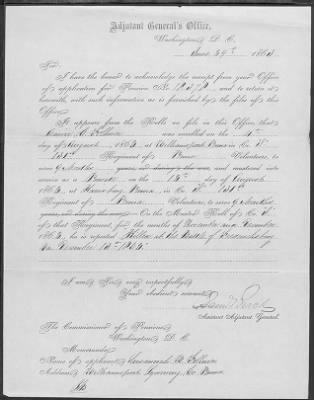 Adjutant General's Office,
Washington, D. C.
June 29th, 1863
Sir:
I have the honor to acknowledge the receipt from your Office
of application for Pension No. and to return it
herewith, with such information as is furnished by the files of this
Office.
It appears from the Rolls on file in this Office, that
was enrolled on the
day of August, 1862, at Williamsport Penna in Co.
131st Regiment of Penna Volunteers, to
serve 9 months years, or during the war, and mustered into
service as a on the day of August
1862, at Harrisburg Penna, in Co. 131st
Regiment of Penna Volunteers, to serve 9 months
years, or during the war. On the Muster Roll of Co.
of that Regiment, for the months of November and December
1862, he is reported Killed at the Battle of Fredericksburg
Va. December 13th 1862.
I am, Sir, very respectfully,
Your obedient servant,
Assistant Adjutant General.
The Commissioner of Pensions,
Washington, D. C.
Memoranda:
Name of applicant,
Address, Williamsport Lycoming Co Penna